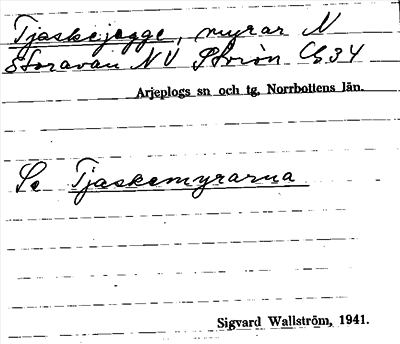 Tjaskejegge, myrar N
Storavan NV Storön Cb34
Arjeplogs sn och tg, Norrbottens län.
Se Tjaskemyrarna
Sigvard Wallström, 1941.